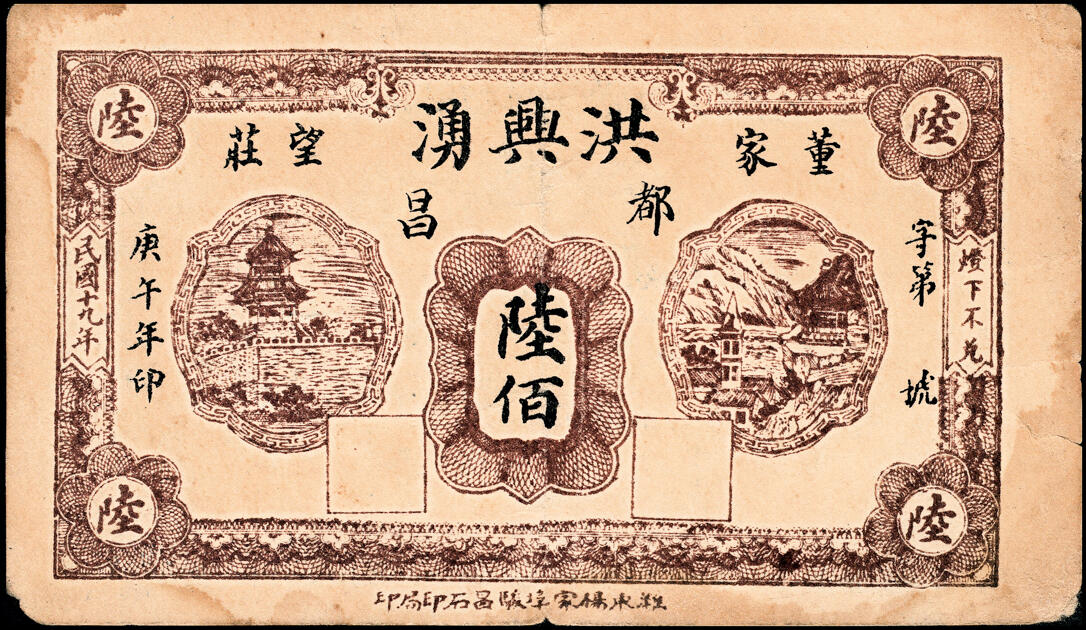 洪興湧
董家
望莊
都昌
陸
陸
陸佰
字第 號
燈下不兌
庚午年印
民國十九年
陸
陸
濰東楊家埠駿昌石印局印